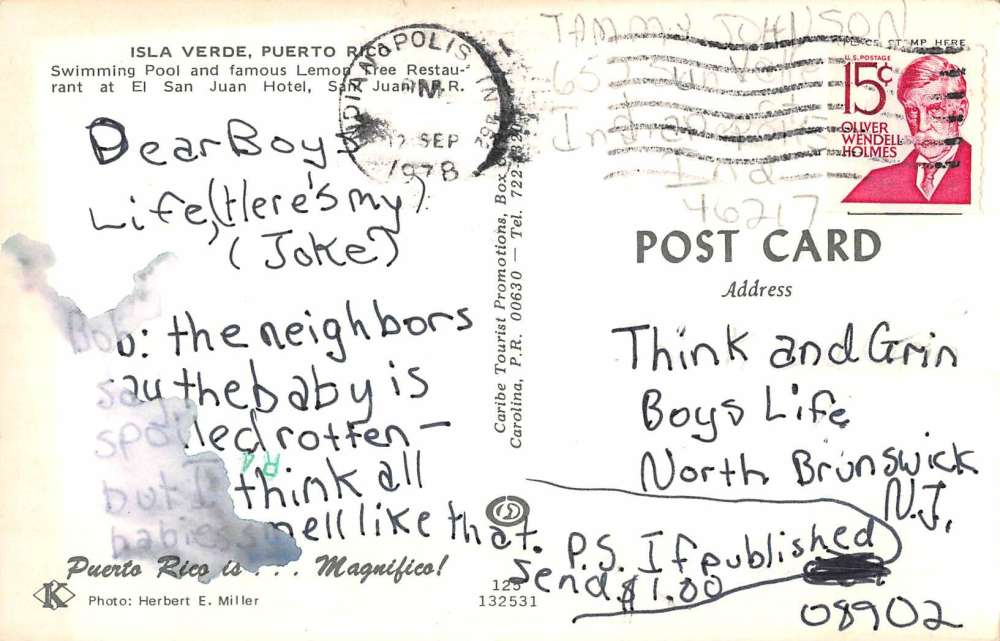 ISLA VERDE, PUERTO RICO
Swimming Pool and famous Lemon Tree Restau-
rant at El San Juan Hotel, San Juan, P.R.
Dear Boys
Life, (Here's my)
(Joke?)
Bob: the neighbors
say the baby is
spoiled rotten —
but I think all
babies smell like that.
Puerto Rico is . . . Magnifico!
K
Photo: Herbert E. Miller
INDIANAPOLIS IN
PM
12 SEP
1978
Caribe Tourist Promotions, Box
Carolina, P.R. 00630 — Tel. 722-
125
132531
TAMMY JOHNSON
Indianapolis
Ind
46217
PLACE STAMP HERE
U.S. POSTAGE
15¢
OLIVER
WENDELL
HOLMES
POST CARD
Address
Think and Grin
Boys Life
North Brunswick
N.J.
08902
P.S. If published
send $1.00